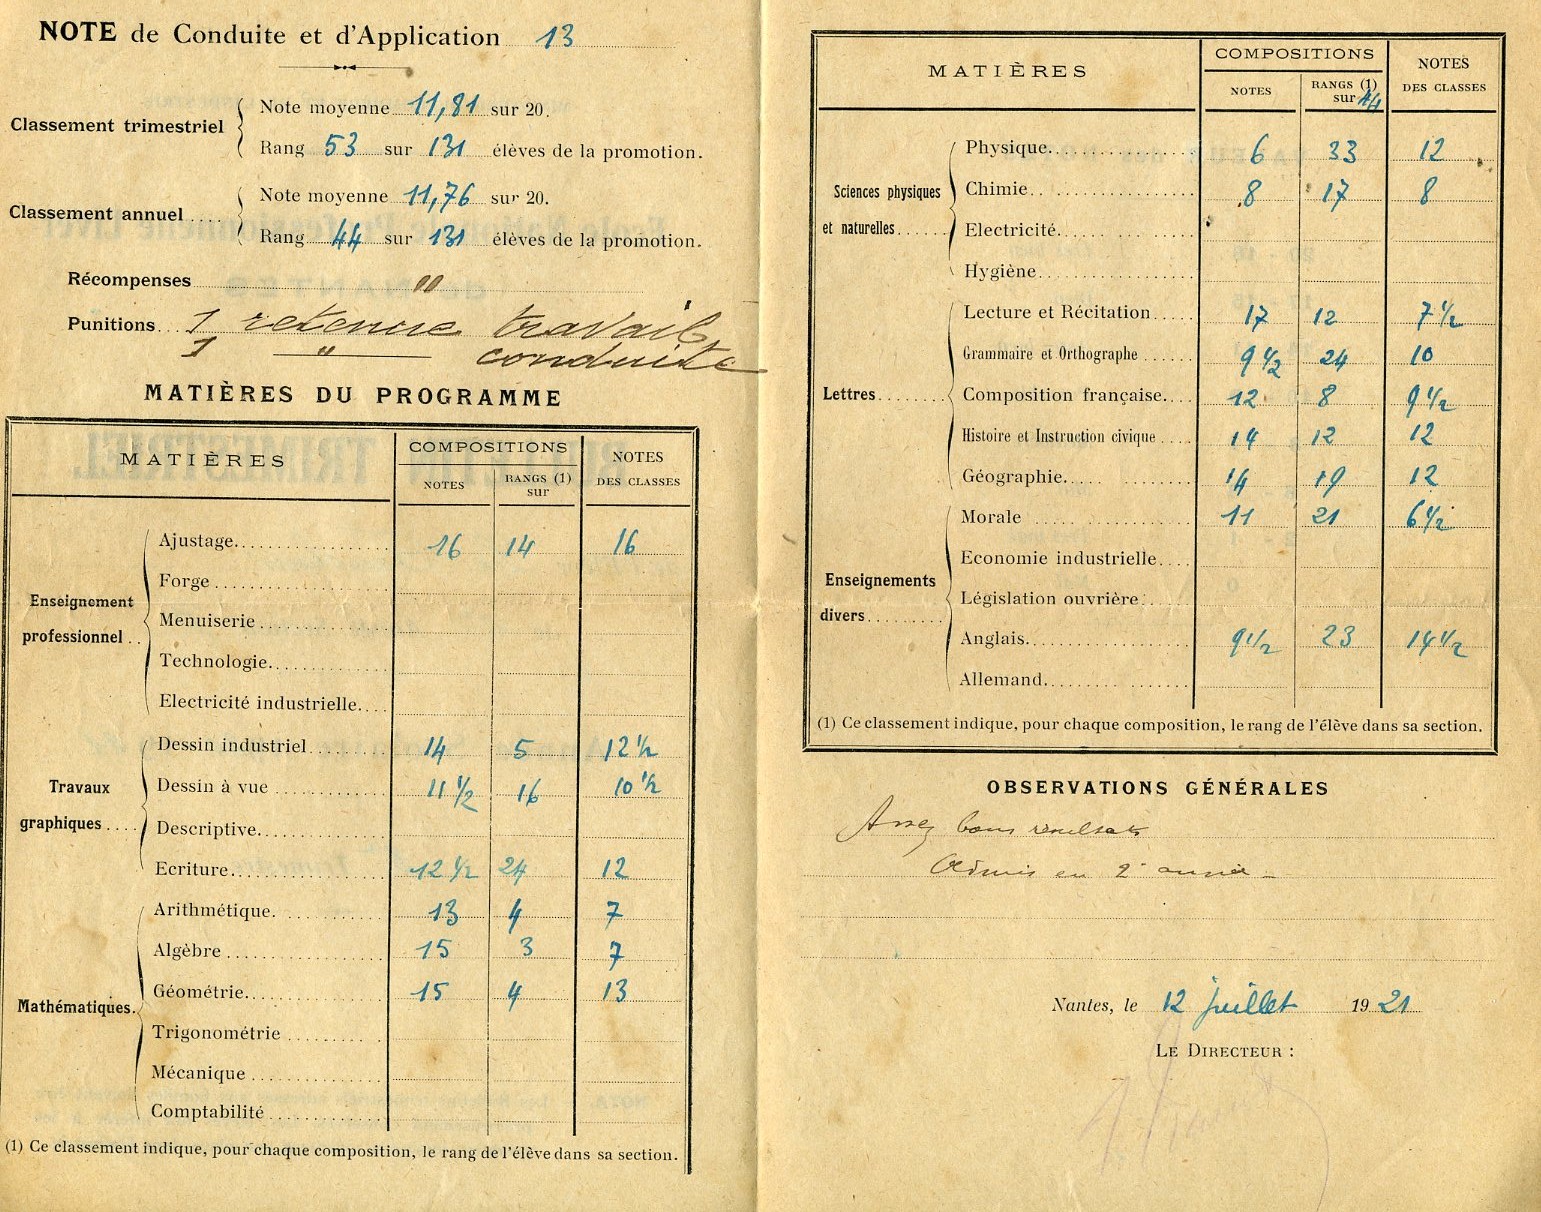 NOTE de Conduite et d'Application 13
Classement trimestriel
Note moyenne 11,81 sur 20.
Rang 53 sur 131 élèves de la promotion.
Classement annuel ....
Note moyenne 11,76 sur 20.
Rang 44 sur 131 élèves de la promotion.
Récompenses "
Punitions 1 retenue travail
1 " conduite
MATIÈRES DU PROGRAMME
MATIÈRES COMPOSITIONS NOTES DES CLASSES
NOTES RANGS (1) sur
Enseignement professionnel
Ajustage 16 14 16
Forge
Menuiserie
Technologie
Electricité industrielle
Travaux graphiques
Dessin industriel 14 5 12 1/2
Dessin à vue 11 1/2 16 10 1/2
Descriptive
Ecriture 12 1/2 24 12
Mathématiques
Arithmétique 13 4 7
Algèbre 15 3 7
Géométrie 15 4 13
Trigonométrie
Mécanique
Comptabilité
(1) Ce classement indique, pour chaque composition, le rang de l'élève dans sa section.
MATIÈRES COMPOSITIONS NOTES DES CLASSES
NOTES RANGS (1) sur 44
Sciences physiques et naturelles
Physique 6 33 12
Chimie 8 17 8
Electricité
Hygiène
Lettres
Lecture et Récitation 17 12 7 1/2
Grammaire et Orthographe 9 1/2 24 10
Composition française 12 8 9 1/2
Histoire et Instruction civique 14 12 12
Géographie 14 19 12
Enseignements divers
Morale 11 21 6 1/2
Economie industrielle
Législation ouvrière
Anglais 9 1/2 23 14 1/2
Allemand
(1) Ce classement indique, pour chaque composition, le rang de l'élève dans sa section.
OBSERVATIONS GÉNÉRALES
Assez bons résultats
Admis en 2e année
Nantes, le 12 juillet 1921
LE DIRECTEUR :